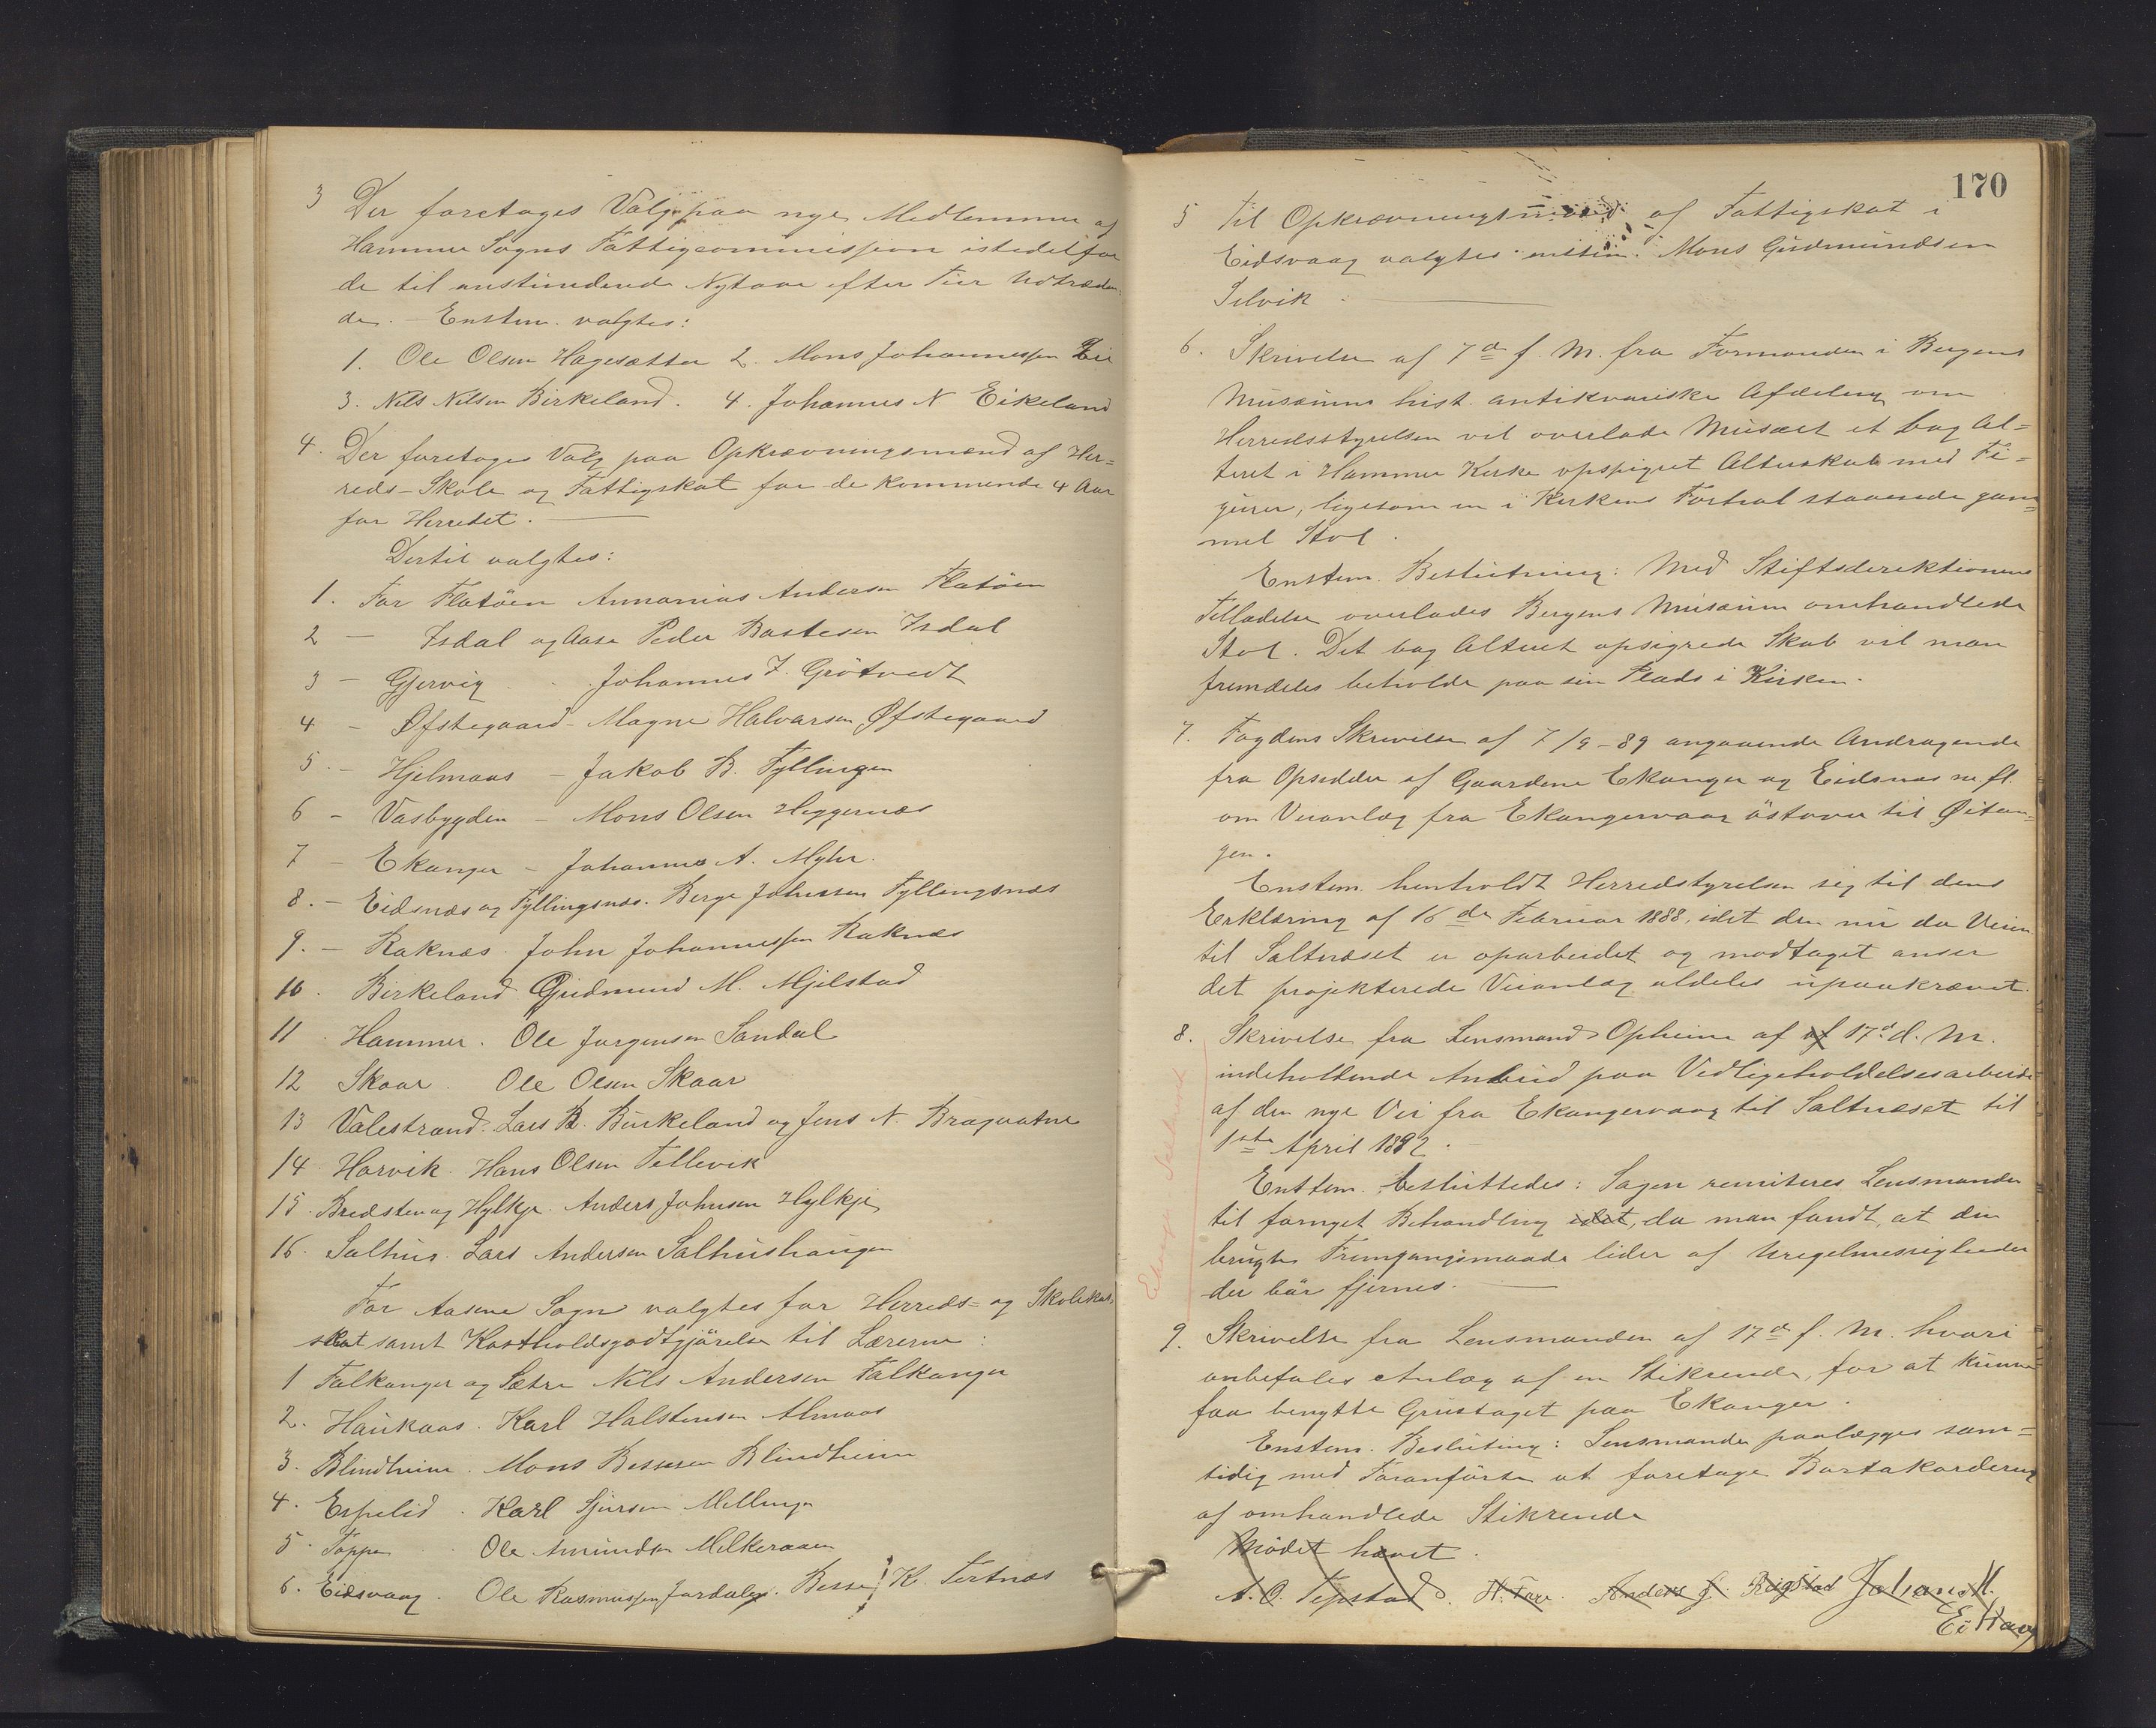 3 Der foretoges Valg paa nye Medlemmer af
Hammer Sogns Fattigcommission istedetfor
de til anstundende Nytaar efter Tur Udtræden-
de. – Enstem. valgtes:
1. Ole Olsen Hagesætter 2. Mons Johannessen Lie
3. Nils Nilsen Birkeland. 4. Johannes N Eikeland
4. Der foretoges Valg paa Opkrævningsmænd af Her=
reds-Skole og Fattigskat for de kommende 4 Aar
for Herredet.
Dertil valgtes:
1. For Flatöen Annanias Andersen Flatöen
2 – Isdal og Aase Peder Bastesen Isdal
3 – Gjervig Johannes J. Grötvedt
4 – Øfstegaard – Magne Halvarsen Øfstegaard
5. – Hjelmaas – Jakob B. Fyllingen
6 – Vasbygden – Mons Olsen Heggernæs
7 – Ekanger – Johannes A. Myhr.
8. – Eidsnæs og Fyllingsnæs. Berge Johnssen Fyllingsnæs
9. – Raknæs John Johannessen Raknæs
10. Birkeland Gudmund M. Mjelstad
11 Hammer. Ole Jørgensen Sandal
12 Skaar. Ole Olsen Skaar
13 Valestrand. Lars B. Birkeland og Jens N. Bragvatne
14 Horvik. Hans Olsen Tellevik
15. Bredsten og Hylkje. Anders Johnsen Hylkje
16. Salhus. Lars Andersen Salhushaugen
For Aasene Sogn valgtes for Herreds- og Skolekas
skat samt Kostholdsgodtgjörelse til Lærerne:
1 Falkanger og Sætre Nils Andersen Falkanger
2. Haukaas. Karl Halstensen Almaas
3. Blindheim. Mons Bessesen Blindheim
4. Espelid. Karl Sjursen Mellingen
5. Toppe Ole Amundsen Melkeraaen
6. Eidsvaag. Ole Rasmussen Jordalen. Besse K. Tertnæs
170
5 Til Opkrævningsmænd af Fattigskat i
Eidsvaag valgtes enstem. Mons Gudmundsen
Selvik
6. Skrivelse af 7de f. M. fra Formanden i Bergens
Musæums hist. antikvariske Afdeling om
Herredsstyrelsen vil overlade Musæet et bag Al=
teret i Hammer Kirke opspigret Alterskab med Fi=
gurer, ligesom en i Kirkens Forhal staaende gam=
mel Stol.
Enstem. Beslutning: Med Stiftsdirektionens
Tilladelse overlades Bergens Musæum omhandlede
Stol. Det bag Alteret opsigrede Skab vil man
fremdeles beholde paa sin Plads i Kirken.
7. Fogdens Skrivelse af 7/9-89 angaaende Andragende
fra Opsidder af Gaardene Ekanger og Eidsnæs m. fl.
om Veianlæg fra Ekangervaag östover til Øitan=
gen.
Enstem. henholdt Herredstyrelsen sig til dens
Erklæring af 16de Februar 1888, idet den nu da Veien
til Saltnæset er oparbeidet og modtaget anser
det projekterede Veianlæg aldeles upaakrævet.
8. Skrivelse fra Lensmand Opheim af af 17de d. M.
indeholdende Anbud paa Vedligeholdelsesarbeide
af den nye Vei fra Ekangervaag til Saltnæset til
1ste April 1892.
Enstem. besluttedes: Sagen remiteres Lensmanden
til fornyet Behandling idet, da man fandt, at den
brugte Fremgangsmaade lider af Uregelmessigheder
der bör fjernes.
9. Skrivelse fra Lensmanden af 17de f. M. hvori
anbefales Anlæg af en Stikrende, for at kunne
faa benytte Grustaget paa Ekanger.
Enstem. Beslutning: Lensmanden paalægges sam=
tidig med Foranförte at foretage Bortakordering
af omhandlede Stikrende
Mödet hævet.
A. O. Tepstad. H. Faye. Anders J. Rigstad Johan M.
Eitvaag